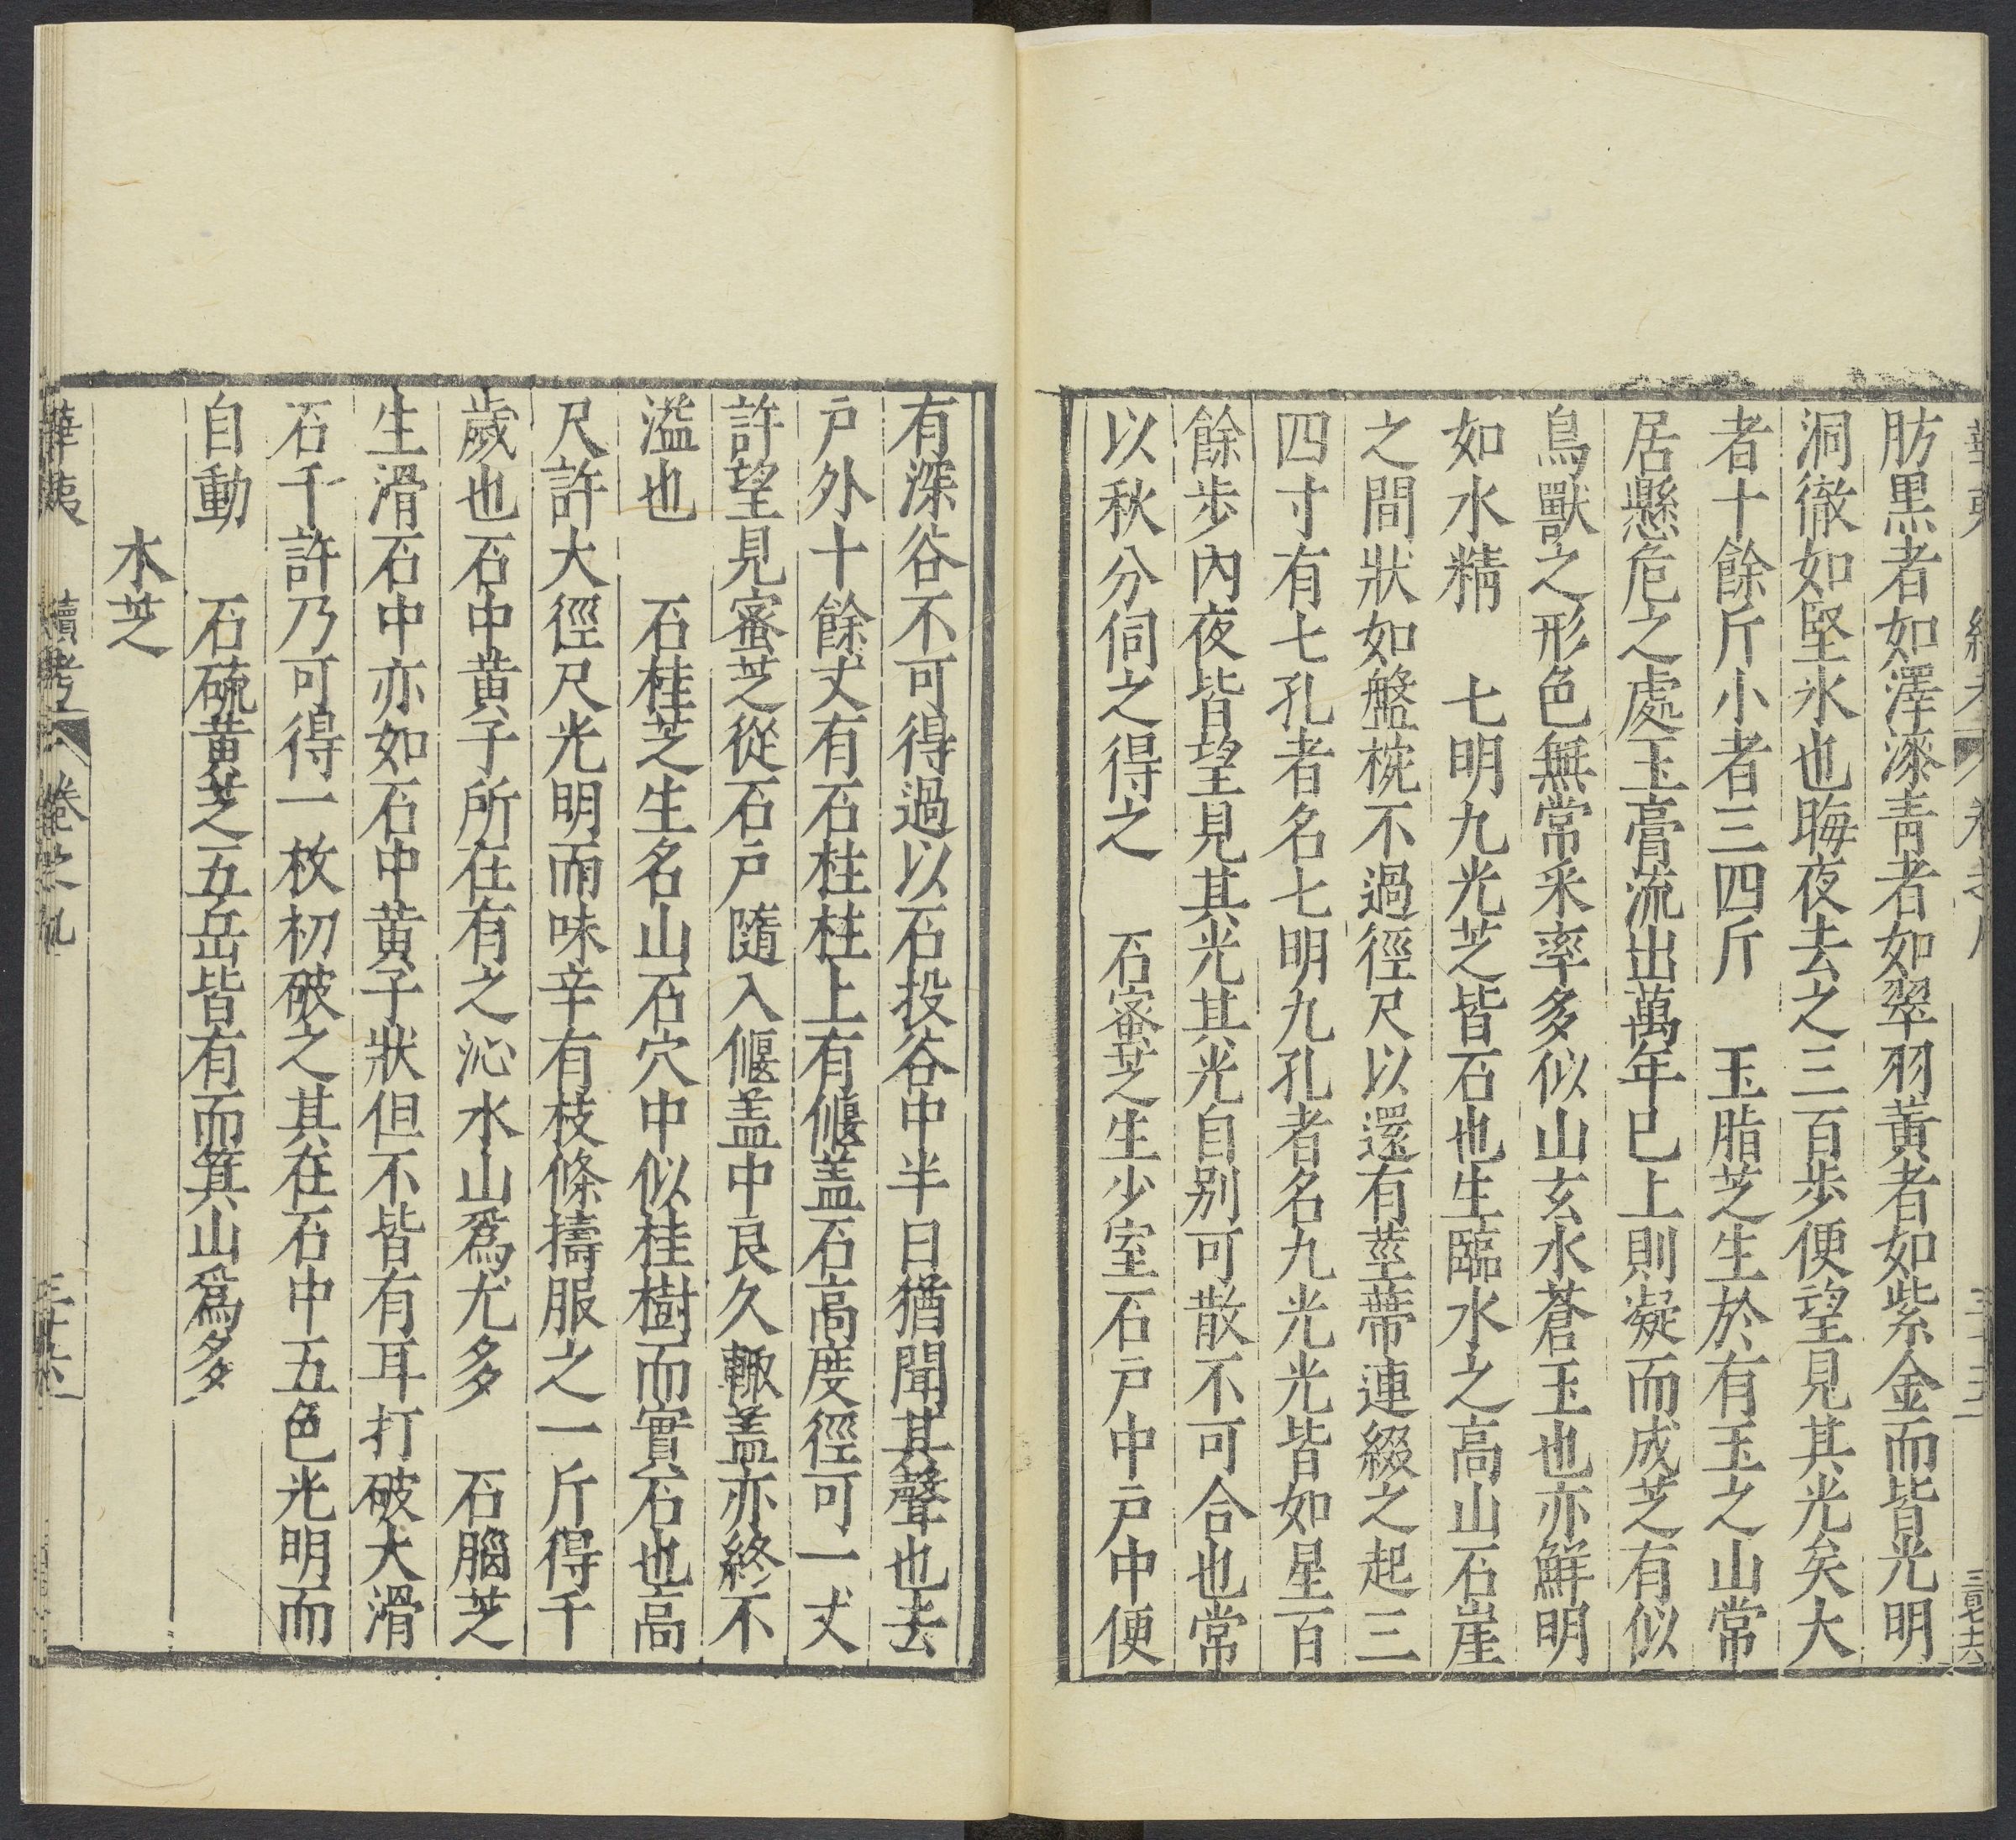 肪黒者如澤漆青者如翠羽黃者如紫金而皆光明
洞徹如堅氷也晦夜去之三百歩便望見其光矣大
者十餘斤小者三四斤　玉脂芝生於有玉之山常
居懸危之處玉膏流出萬年已上則凝而成芝有似
鳥獸之形色無常采率多似山玄水蒼玉也亦鮮明
如水精　七明九光芝皆石也生臨水之高山石崖
之間狀如盤椀不過徑尺以還有莖蒂連綴之起三
四寸有七孔者名七明九孔者名九光光皆如星百
餘歩內夜皆望見其光其光自别可散不可合也常
以秋分伺之得之　石蜜芝生少室石戶中戶中便
有深谷不可得過以石投谷中半日猶聞其聲也去
戶外十餘丈有石柱柱上有偃盖石高度徑可一丈
許望見蜜芝從石戶隨入偃盖中良久輙盖亦終不
溢也　石桂芝生名山石穴中似桂樹而實石也高
尺許大徑尺光明而味辛有枝條擣服之一斤得千
歲也石中黄子所在有之沁水山爲尤多　石腦芝
生滑石中亦如石中黄子狀但不皆有耳打破大滑
石千許乃可得一枚初破之其在石中五色光明而
自動　石硫黄芝五岳皆有而箕山爲多
木芝
華夷　續考　卷之